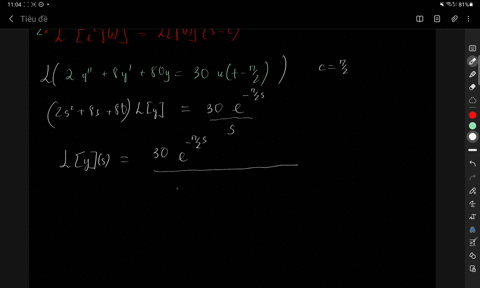 11:04
81%
Tiêu đề
L(2y" + 8y' + 80y = 30 u(t - π/2)) c = π/2
(2s² + 8s + 80) L[y] = 30 e^{-π/2 s} / s
L[y](s) = 30 e^{-π/2 s}